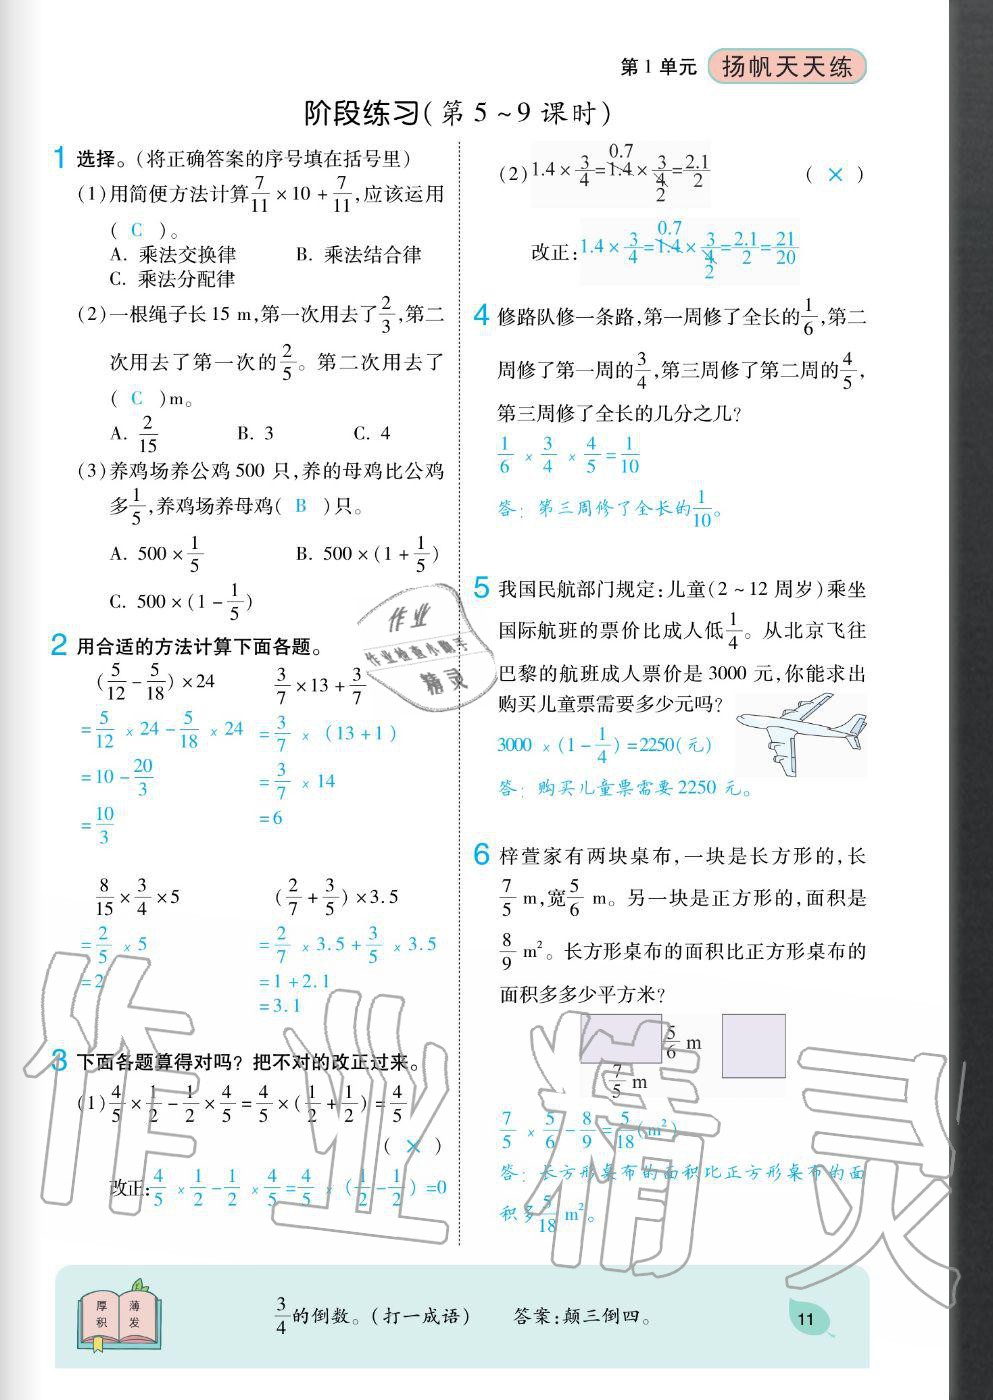 第1单元 扬帆天天练
阶段练习(第5~9课时)
1 选择。(将正确答案的序号填在括号里)
(1)用简便方法计算7/11×10+7/11,应该运用
( C )。
A. 乘法交换律 B. 乘法结合律
C. 乘法分配律
(2)一根绳子长15 m,第一次用去了2/3,第二
次用去了第一次的2/5。第二次用去了
( C )m。
A. 2/15 B. 3 C. 4
(3)养鸡场养公鸡500只,养的母鸡比公鸡
多1/5,养鸡场养母鸡( B )只。
A. 500×1/5 B. 500×(1+1/5)
C. 500×(1-1/5)
2 用合适的方法计算下面各题。
(5/12-5/18)×24 3/7×13+3/7
=5/12×24-5/18×24 =3/7×(13+1)
=10-20/3 =3/7×14
=10/3 =6
8/15×3/4×5 (2/7+3/5)×3.5
=2/5×5 =2/7×3.5+3/5×3.5
=2 =1+2.1
=3.1
3 下面各题算得对吗?把不对的改正过来。
(1)4/5×1/2-1/2×4/5=4/5×(1/2+1/2)=4/5
( × )
改正:4/5×1/2-1/2×4/5=4/5×(1/2-1/2)=0
(2)1.4×3/4=1.4×3/4=2.1/2 ( × )
0.7
2
改正:1.4×3/4=1.4×3/4=2.1/2=21/20
0.7
2
4 修路队修一条路,第一周修了全长的1/6,第二
周修了第一周的3/4,第三周修了第二周的4/5,
第三周修了全长的几分之几?
1/6×3/4×4/5=1/10
答:第三周修了全长的1/10。
5 我国民航部门规定:儿童(2~12周岁)乘坐
国际航班的票价比成人低1/4。从北京飞往
巴黎的航班成人票价是3000元,你能求出
购买儿童票需要多少元吗?
3000×(1-1/4)=2250(元)
答:购买儿童票需要2250元。
6 梓萱家有两块桌布,一块是长方形的,长
7/5 m,宽5/6 m。另一块是正方形的,面积是
8/9 m²。长方形桌布的面积比正方形桌布的
面积多多少平方米?
5/6 m
7/5 m
7/5×5/6-8/9=5/18(m²)
答:长方形桌布的面积比正方形桌布的面
积多5/18 m²。
作业
作业检查小助手
精灵
作业精灵
厚积 薄发
3/4的倒数。(打一成语) 答案:颠三倒四。
11